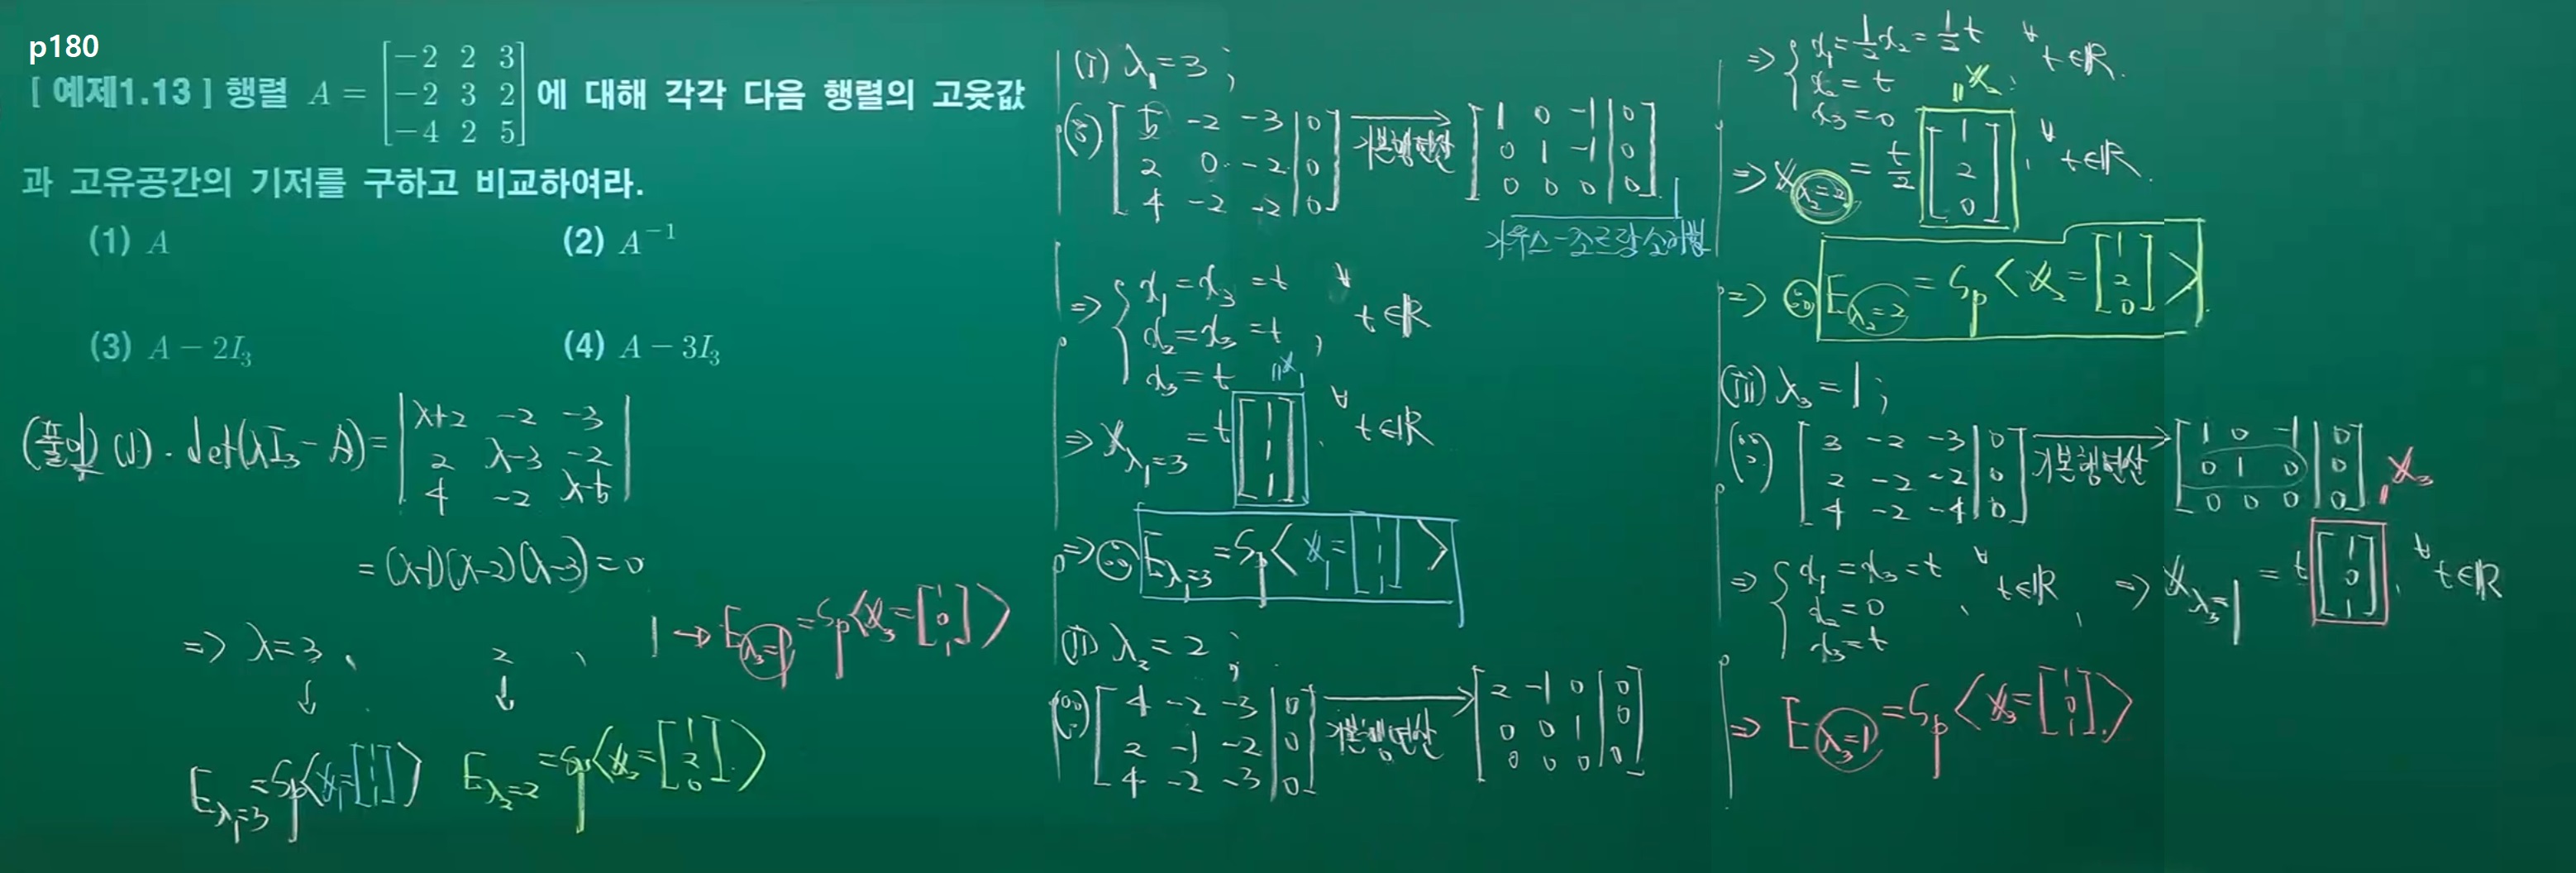 p180
[ 예제1.13 ] 행렬 A = [−2 2 3; −2 3 2; −4 2 5] 에 대해 각각 다음 행렬의 고윳값
과 고유공간의 기저를 구하고 비교하여라.
(1) A (2) A⁻¹
(3) A − 2I₃ (4) A − 3I₃
(풀이) (1). det(λI₃ − A) = |λ+2 −2 −3; 2 λ−3 −2; 4 −2 λ−5|
= (λ−1)(λ−2)(λ−3) = 0
⇒ λ = 3, 2, 1 → E_{λ₃=1} = Sp⟨x₃ = [1; 0; 1]⟩
↓ ↓
E_{λ₁=3} = Sp⟨x₁ = [1; 1; 1]⟩ E_{λ₂=2} = Sp⟨x₂ = [1; 2; 0]⟩
(i) λ₁ = 3 ;
(∵) [5 −2 −3 | 0; 2 0 −2 | 0; 4 −2 −2 | 0] → 기본행연산 [1 0 −1 | 0; 0 1 −1 | 0; 0 0 0 | 0]
가우스-조르당 소거법
⇒ { x₁ = x₃ = t
x₂ = x₃ = t , ∀t∈ℝ
x₃ = t
"x₁
⇒ x_{λ₁=3} = t [1; 1; 1], ∀t∈ℝ
⇒ ∴ E_{λ₁=3} = Sp⟨x₁ = [1; 1; 1]⟩
(ii) λ₂ = 2 ;
(∵) [4 −2 −3 | 0; 2 −1 −2 | 0; 4 −2 −3 | 0] → 기본행연산 [2 −1 0 | 0; 0 0 1 | 0; 0 0 0 | 0]
⇒ { x₁ = ½x₂ = ½t ∀t∈ℝ.
x₂ = t
x₃ = 0
"x₂
⇒ x_{λ₂=2} = t/2 [1; 2; 0], ∀t∈ℝ.
⇒ ∴ E_{λ₂=2} = Sp⟨x₂ = [1; 2; 0]⟩
(iii) λ₃ = 1 ;
(∵) [3 −2 −3 | 0; 2 −2 −2 | 0; 4 −2 −4 | 0] → 기본행연산 [1 0 −1 | 0; 0 1 0 | 0; 0 0 0 | 0]
"x₃
⇒ { x₁ = x₃ = t
x₂ = 0 , ∀t∈ℝ, ⇒ x_{λ₃=1} = t [1; 0; 1], ∀t∈ℝ
x₃ = t
⇒ E_{λ₃=1} = Sp⟨x₃ = [1; 0; 1]⟩